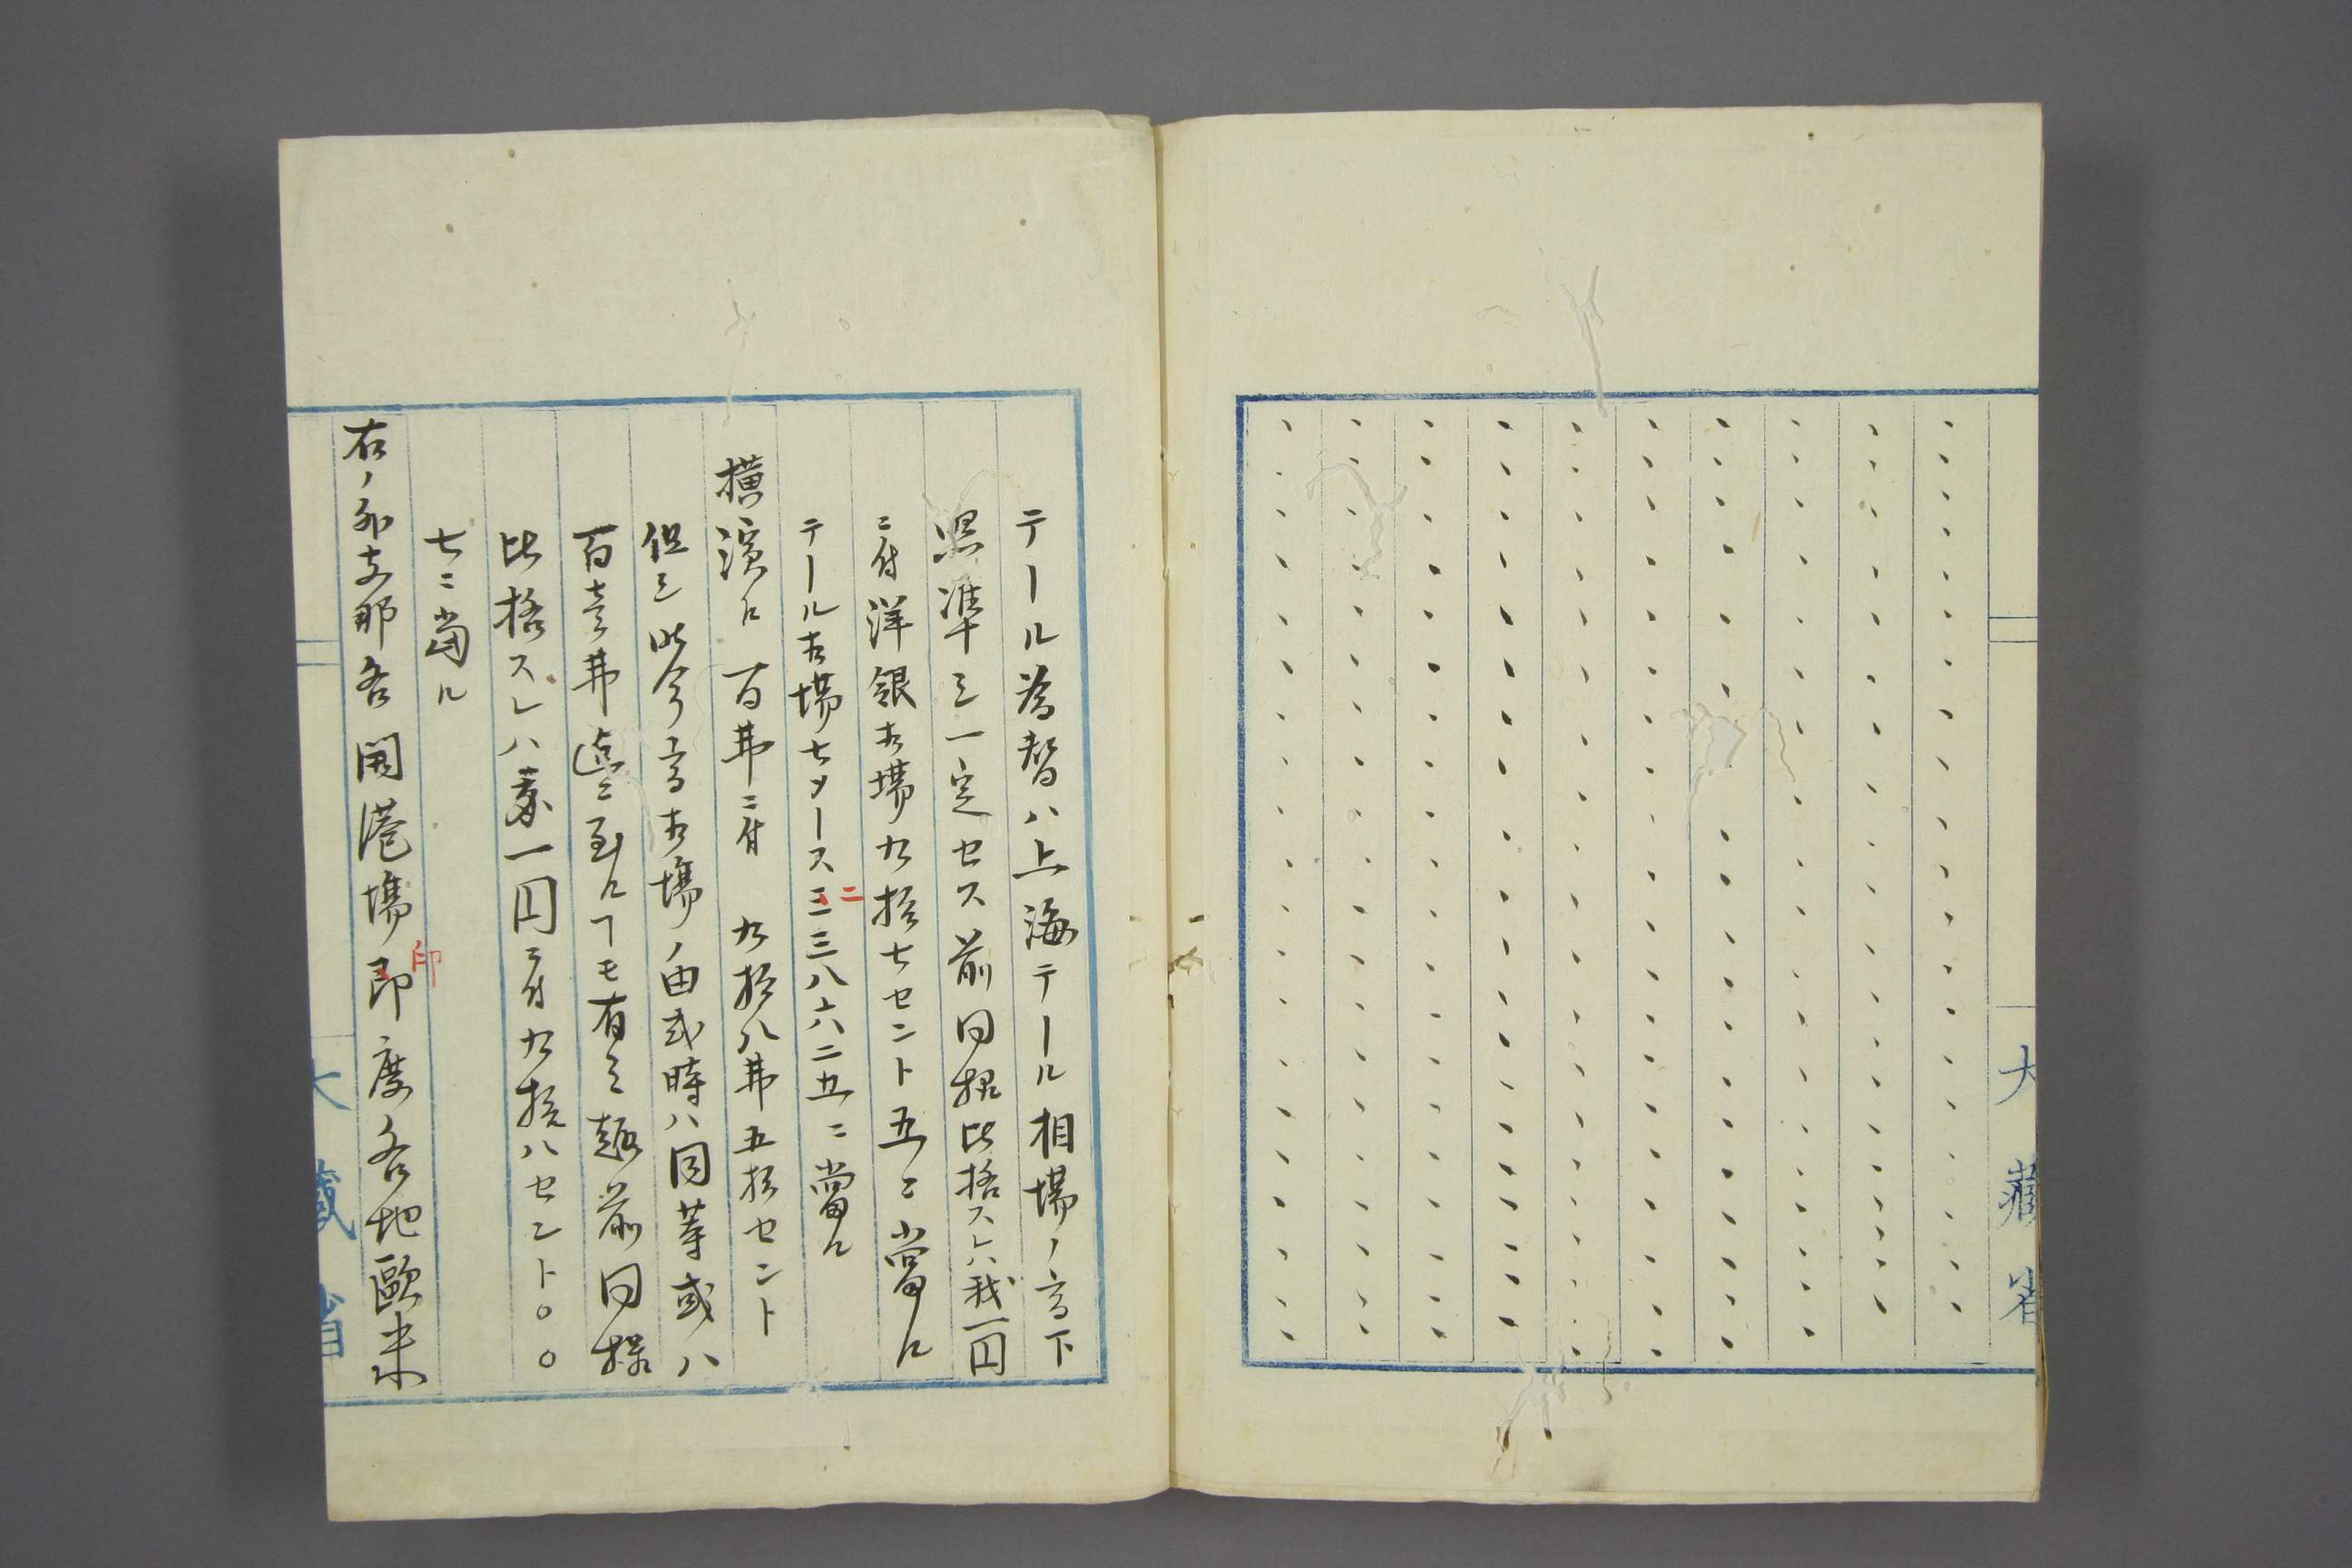 大藏省
テール為替ハ上海テール相場ノ高下
ニ準シ一定セス前同様比挌スレハ我一円
ニ付洋銀相場九拾七セント五ニ當ル
テール相場七メース三三八六二五ニ當ル
二
横濱ハ百弗ニ付 九拾八弗五拾セント
但シ昨今高相場ノ由或時ハ同等或ハ
百壱弗ニ至ルヿモ有之趣前同様
比挌スレハ我一円ニ付九拾八セント〇〇
七ニ當ル
右ノ外支那各開港場印度各地歐米
印
大藏省